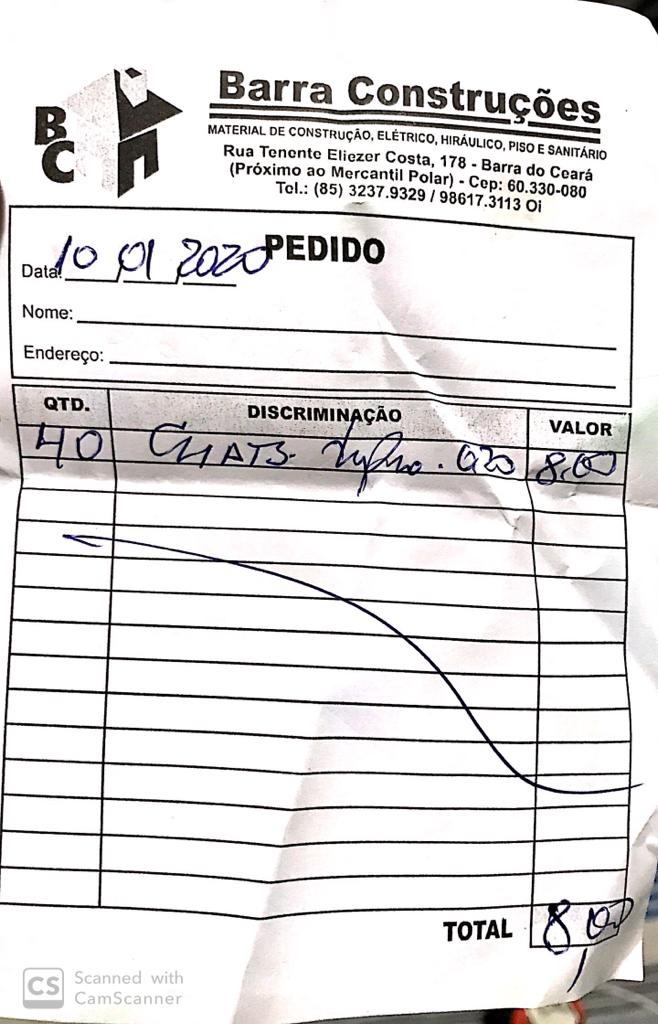 BC
Barra Construções
MATERIAL DE CONSTRUÇÃO, ELÉTRICO, HIRÁULICO, PISO E SANITÁRIO
Rua Tenente Eliezer Costa, 178 - Barra do Ceará
(Próximo ao Mercantil Polar) - Cep: 60.330-080
Tel.: (85) 3237.9329 / 98617.3113 Oi
PEDIDO
Data: 10 01 2020
Nome:
Endereço:
QTD. DISCRIMINAÇÃO VALOR
40 0,20 8,00
TOTAL 8,00
CS Scanned with
CamScanner